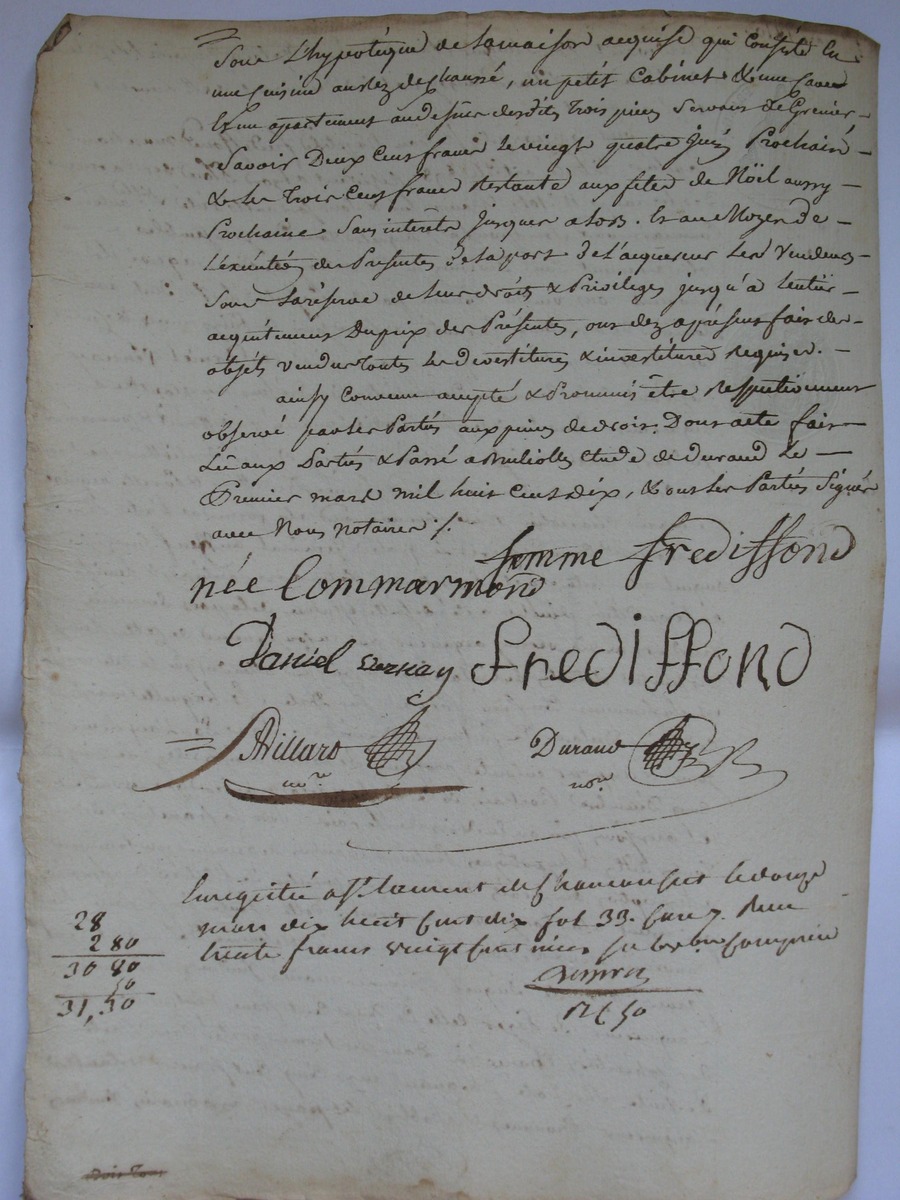 Sous L'hypotéque de la maison acquise qui Consiste en
une Cuisine au rez de Chaussé, un petit Cabinet & une Cave
Et un apartement au dessus desdites trois pieces Servant de Grenier
Savoir Deux Cent francs le vingt quatre Juin Prochain
& les Trois Cent francs Restants aux fetes de Nöel aussy
Prochaine Sans interêts Jusques alors. Et au Moyen de
L'exécution des Présentes de la part de L'acquereur Les Vendeurs
Sous la réserve de leurs droits & Privileges jusqu'à L'entier
acquitement Du prix des Présentes, ont dez aprésent fait des
objets vendus Toutes les devestitures & investitures Requises.
ainsy Convenu accepté & Promis être Respectivement
observé par les Partiés aux peines de droit. Dont acte fait
Lû aux Partiés & Passé a Etude de Durand Le
Premier mars mil huit Cent dix, & ont les Partiés Signés
avec Nous notaires ./.
femme fredissond
née Commarmond
Daniel fredissond
Villard Durand
nore nore
Enregistré a St. laurent de Chamousset le douze
mars dix huit Cent dix fol 33. Case 7. Reçu
trente francs vingt Cent
28
2 80
30 80
50
31,30